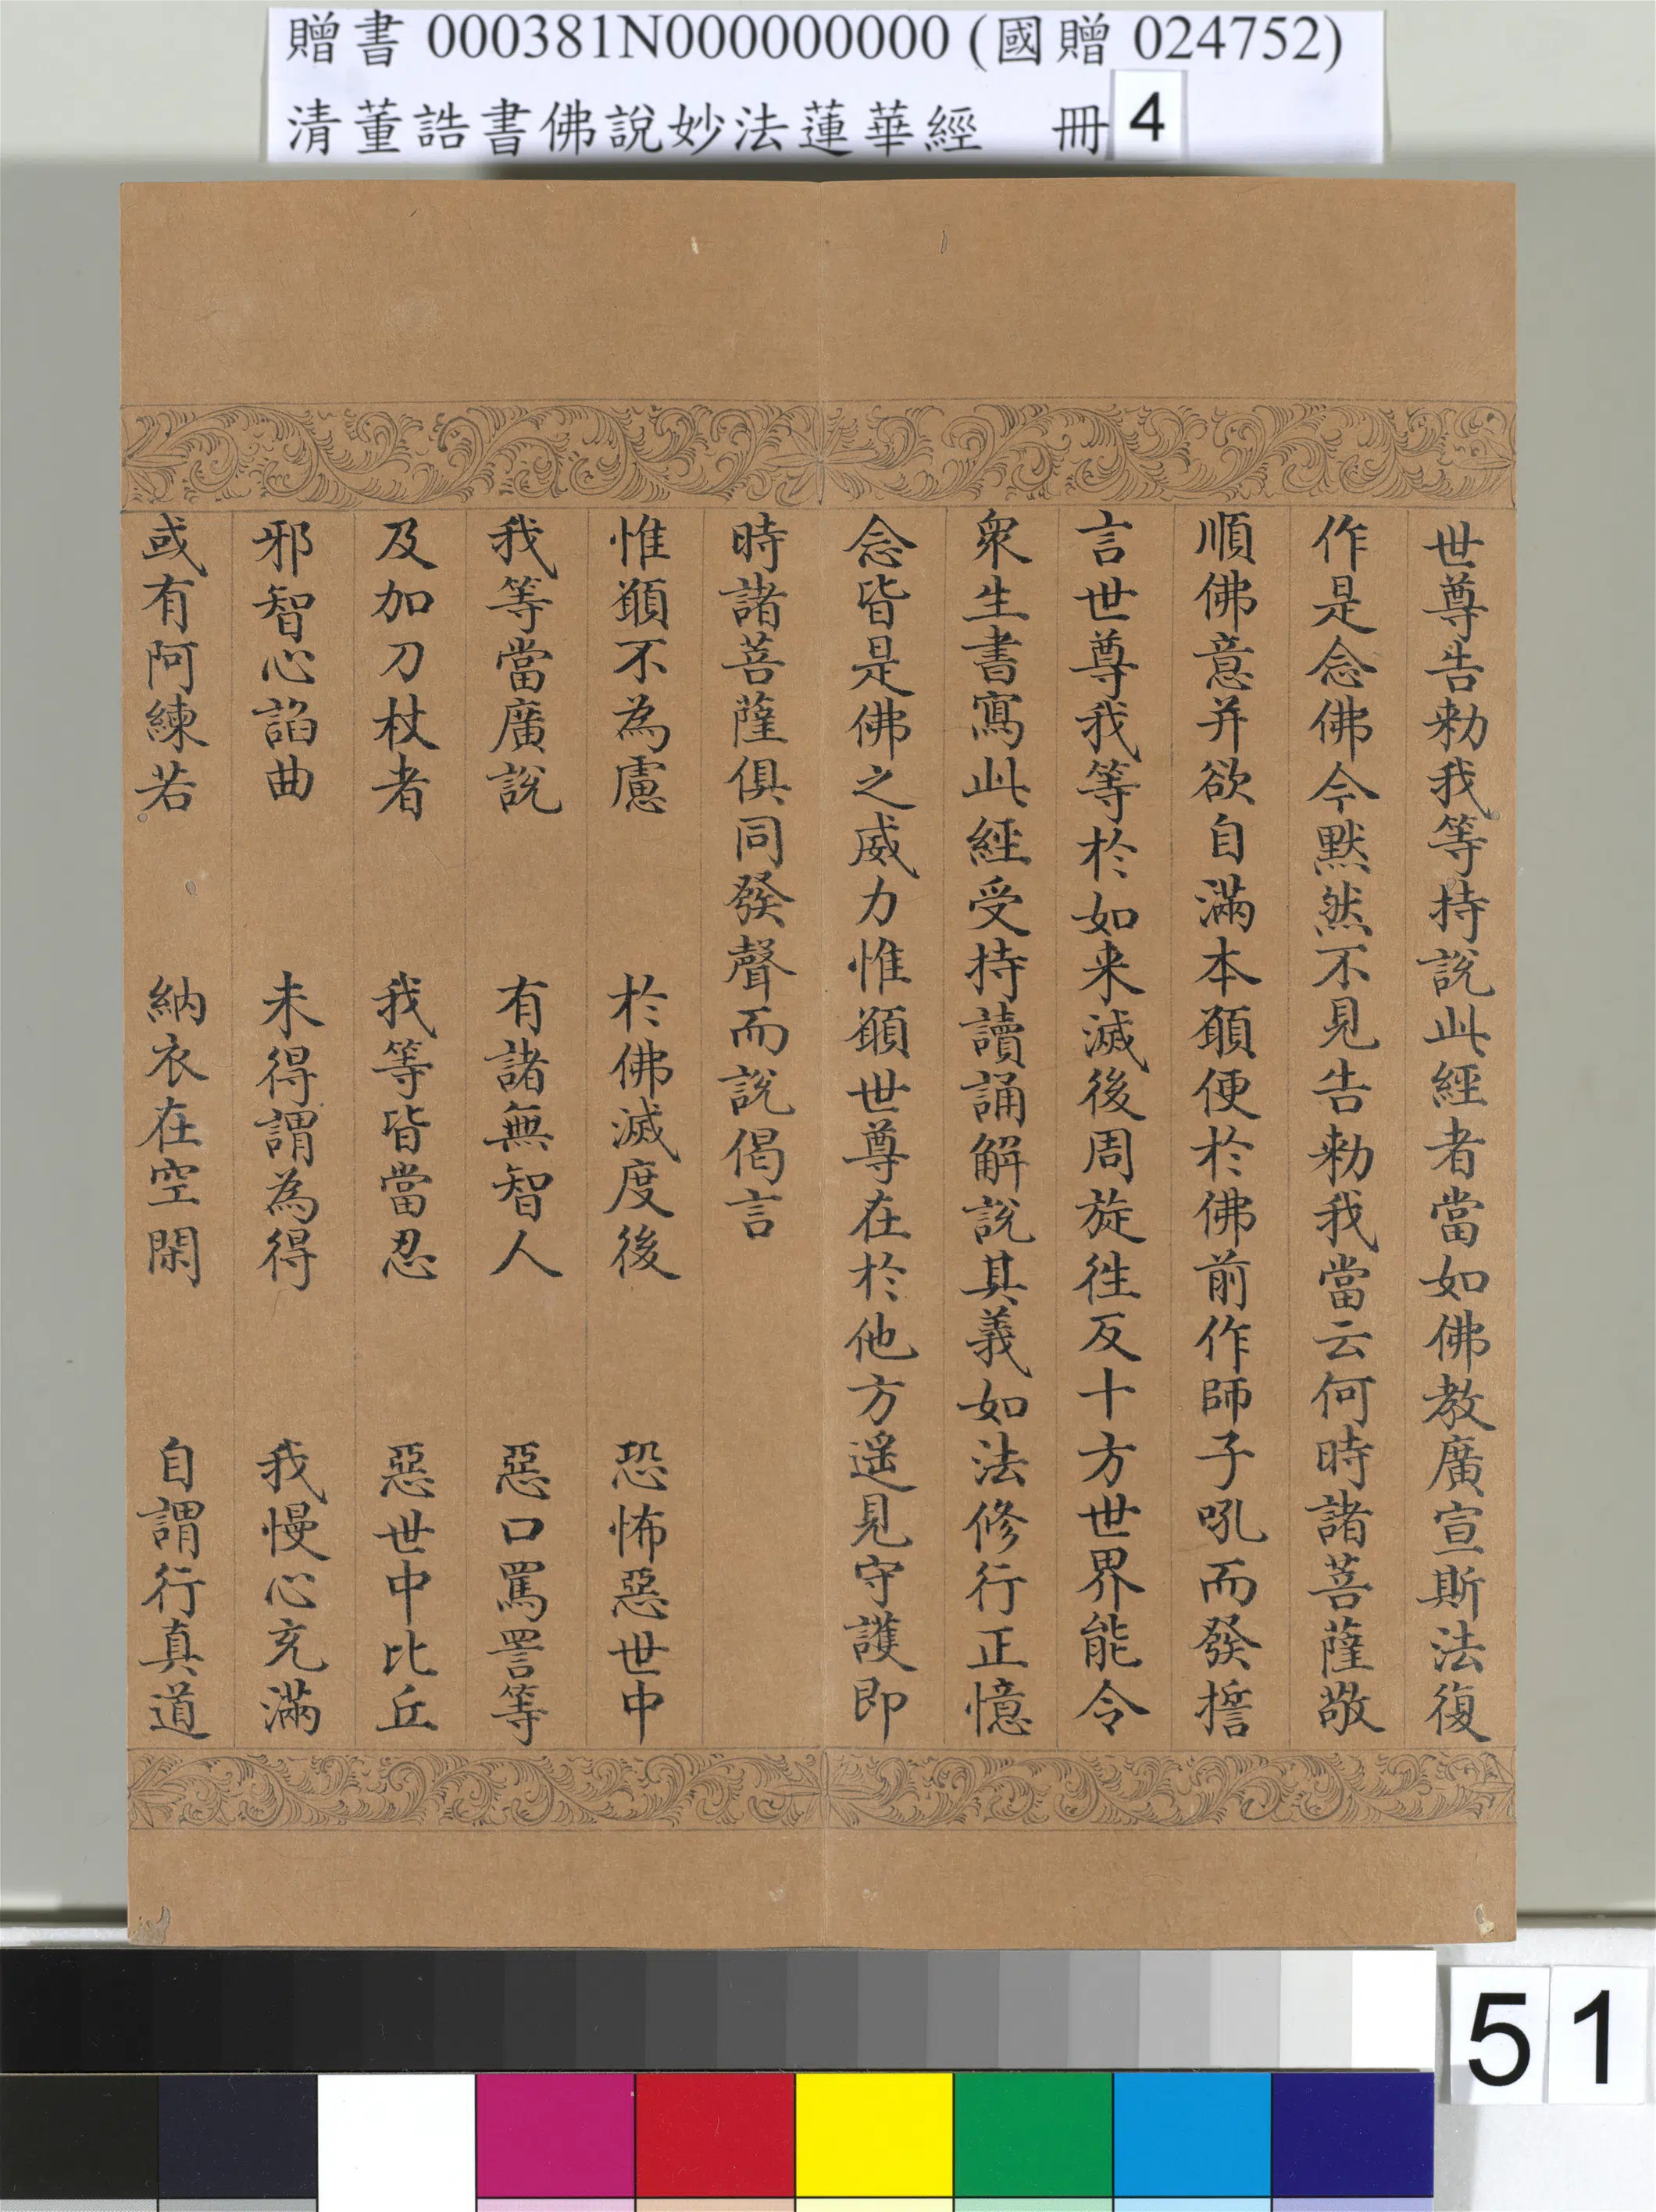 贈書 000381N000000000 (國贈 024752)
清董誥書佛說妙法蓮華經 冊 4
世尊告勑我等持說此經者當如佛教廣宣斯法復
作是念佛今默然不見告勑我當云何時諸菩薩敬
順佛意并欲自滿本願便於佛前作師子吼而發擔
言世尊我等於如来滅後周旋徃反十方世界能令
衆生書寫此經受持讀誦解說其義如法修行正憶
念皆是佛之威力惟願世尊在於他方遥見守護即
時諸菩薩俱同發聲而說偈言
惟願不為慮 於佛滅度後 恐怖惡世中
我等當廣說 有諸無智人 惡口罵詈等
及加刀杖者 我等皆當忍 惡世中比丘
邪智心諂曲 未得謂為得 我慢心充滿
或有阿練若 納衣在空閑 自謂行真道
51